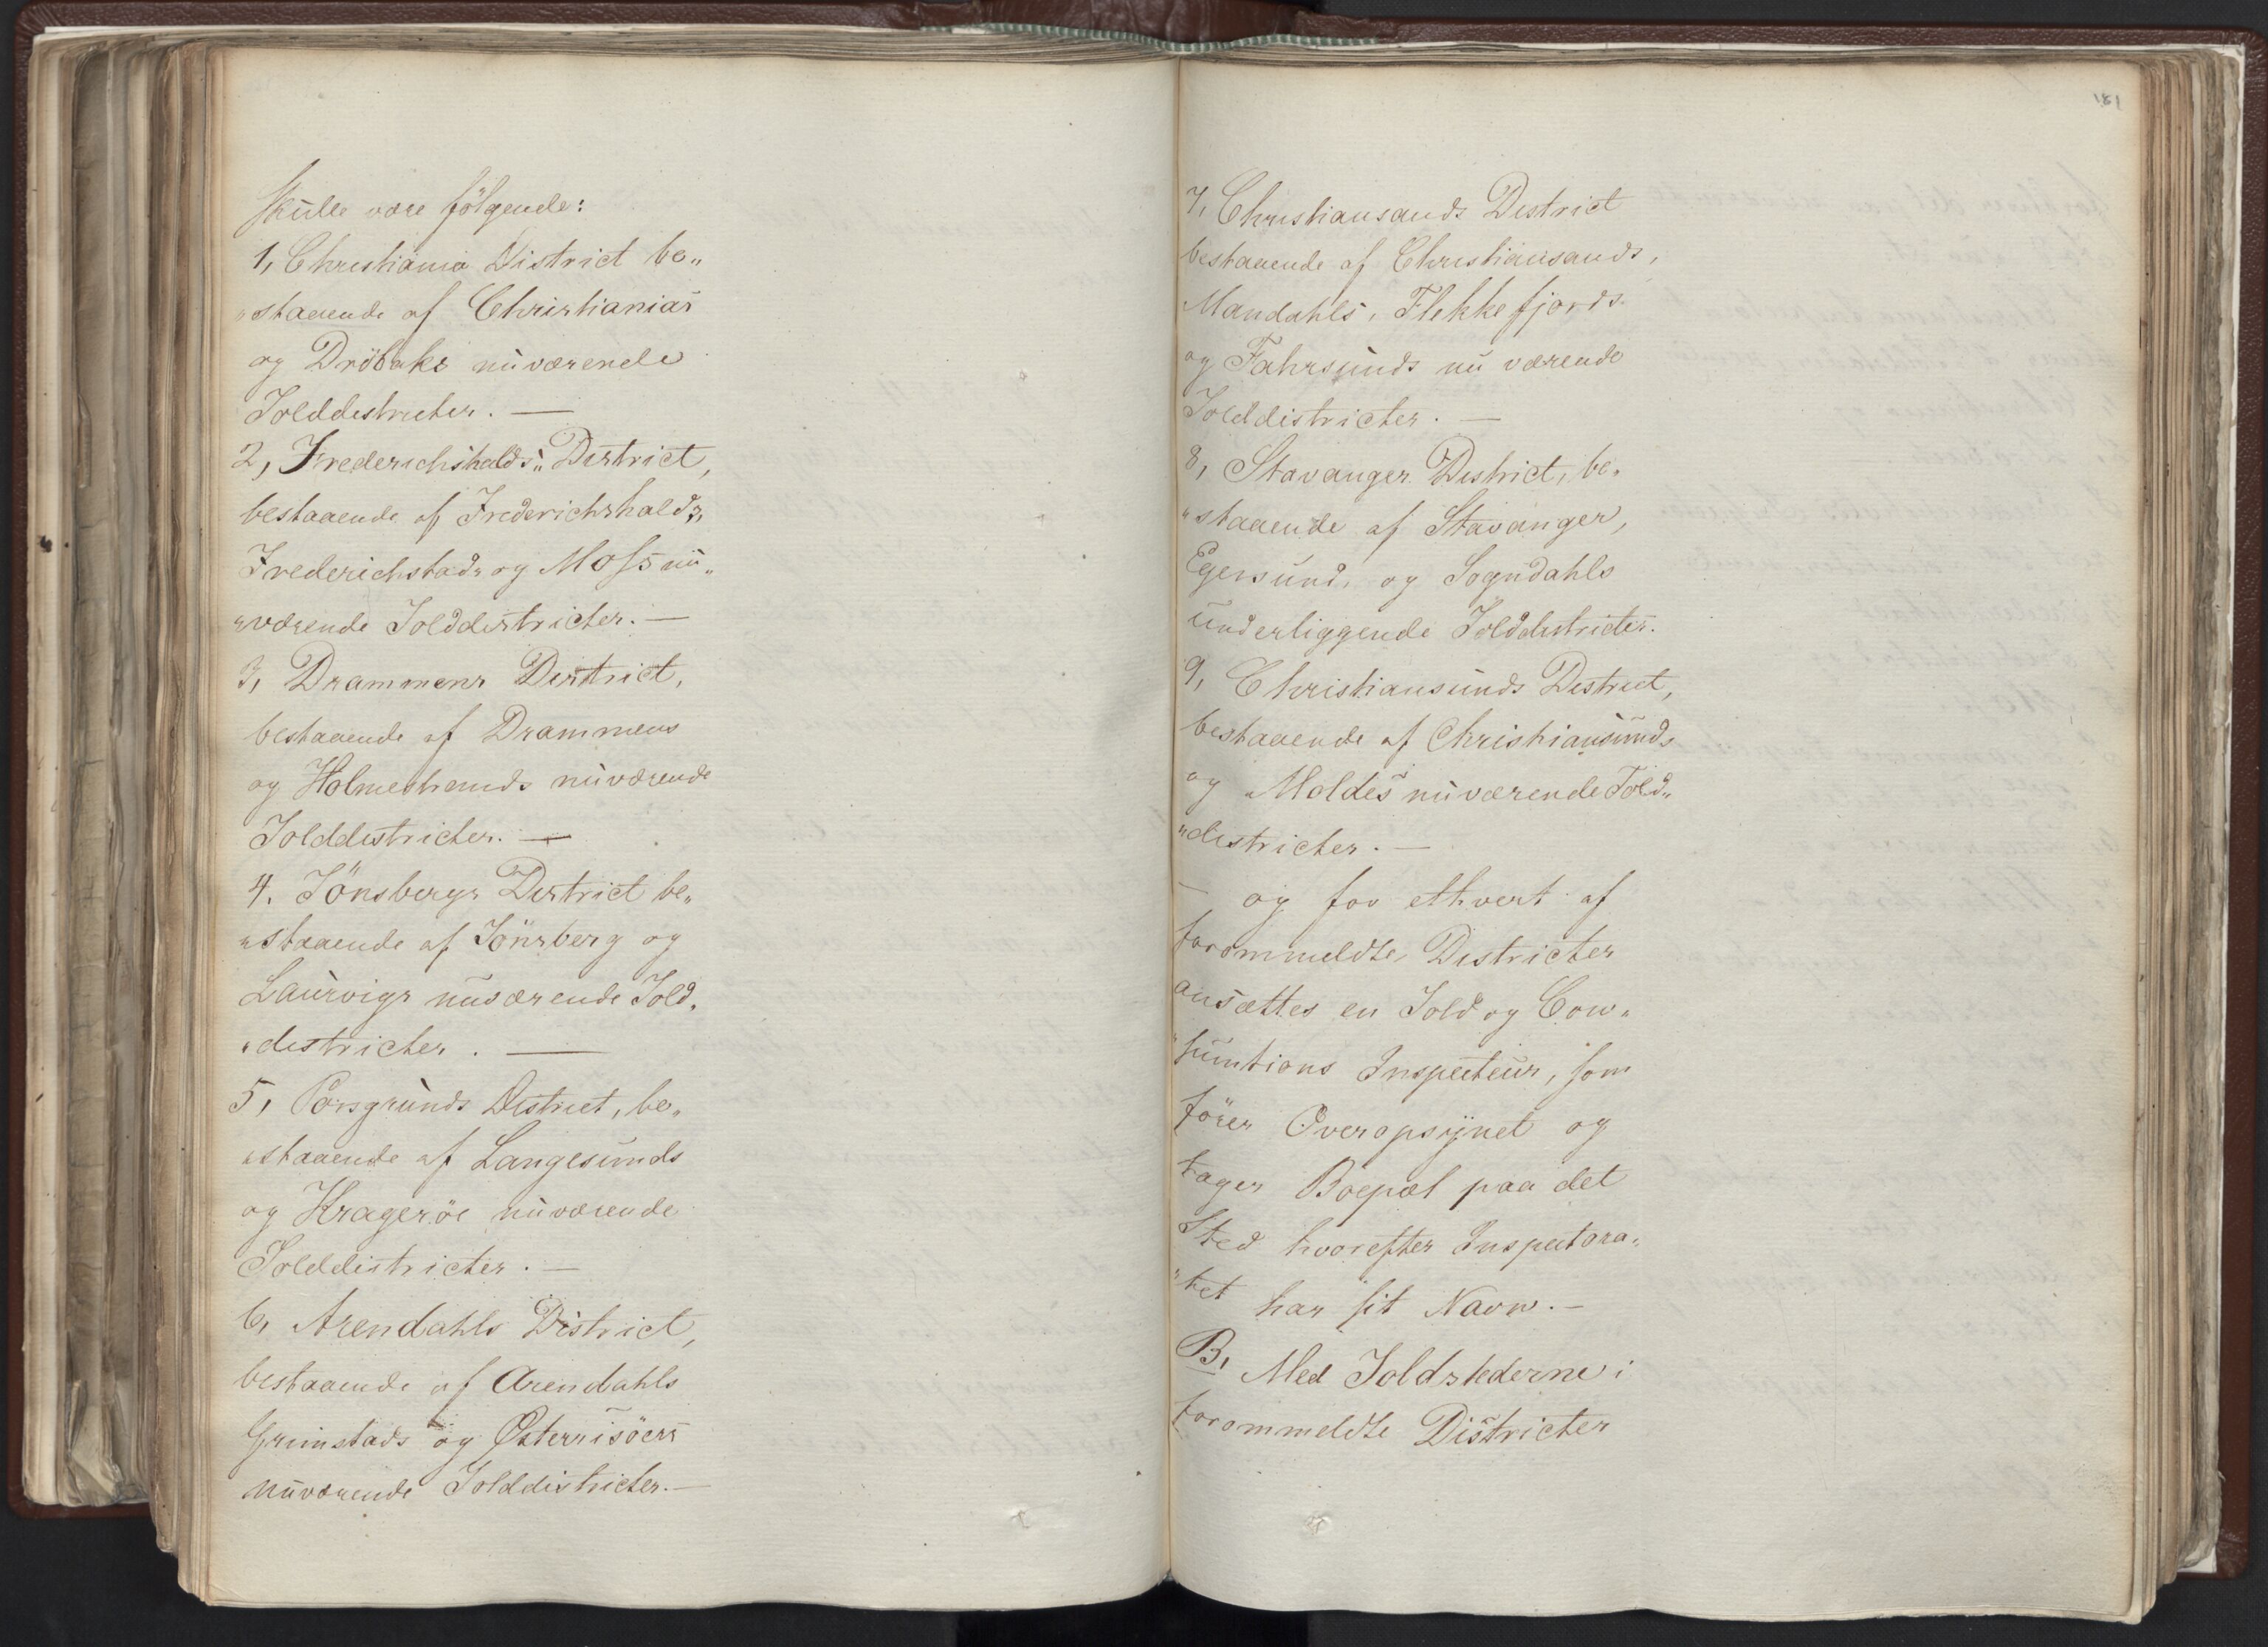 skulle være følgende:
1, Christiania District be„
„staaende af Christianias
og Dröbaks nuværende
Tolddistricter. —
2, Frederichshalds„ District,
bestaaende af Frederichshalds,
Frederichstads og Moss nu„
„værende Tolddistricter. —
3, Drammens District,
bestaaende af Drammens
og Holmestrands nuværende
Tolddistricter. —
4. Tönsbergs District be„
„staaende af Tönsberg og
Laurvigs nuværende Told„
„districter. —
5, Porsgrunds District, be„
„staaende af Langesunds
og Krageröe nuværende
Tolddistricter. —
6, Arendahls District,
bestaaende af Arendahls
Grimstads og Østerrisöers
nuværende Tolddistricter. —
181
7, Christiansands District
bestaaende af Christiansands,
Mandahls, Flekkefjords
og Fahrsunds nu værende
Tolddistricter. —
8, Stavanger District, be„
„staaende af Stavanger,
Egersund, og Sogndahls
underliggende Tolddistricter.
9, Christiansunds District,
bestaaende af Christiansunds
og Moldes nuværende Told„
„districter. —
— og for ethvert af
forommeldte Districter
ansættes en Told og Con„
„sumtions Inspecteur, som
förer Overopsijnet og
tager Boepæl paa det
Sted hvorefter Inspectora„
„tet har sit Navn. —
B, Med Toldstederne i
forommeldte Districter